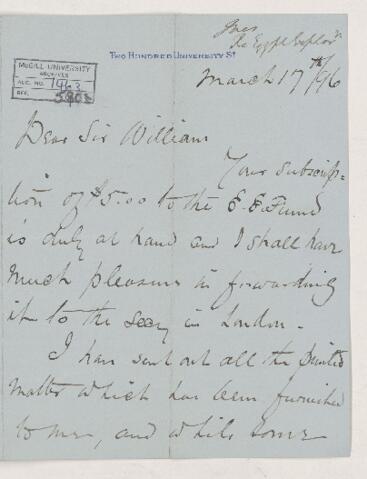 re Egypt Explorn
Two Hundred University St
McGILL UNIVERSITY
ARCHIVES
ACC. NO. 1463
REF.
March 17th/96
Dear Sir William
Your subscrip-
tion of $5.00 to the E. E. Fund
is duly at hand and I shall have
much pleasure in forwarding
it to the secy in London -
I have sent out all the printed
matter which has been furnished
to me, and while some